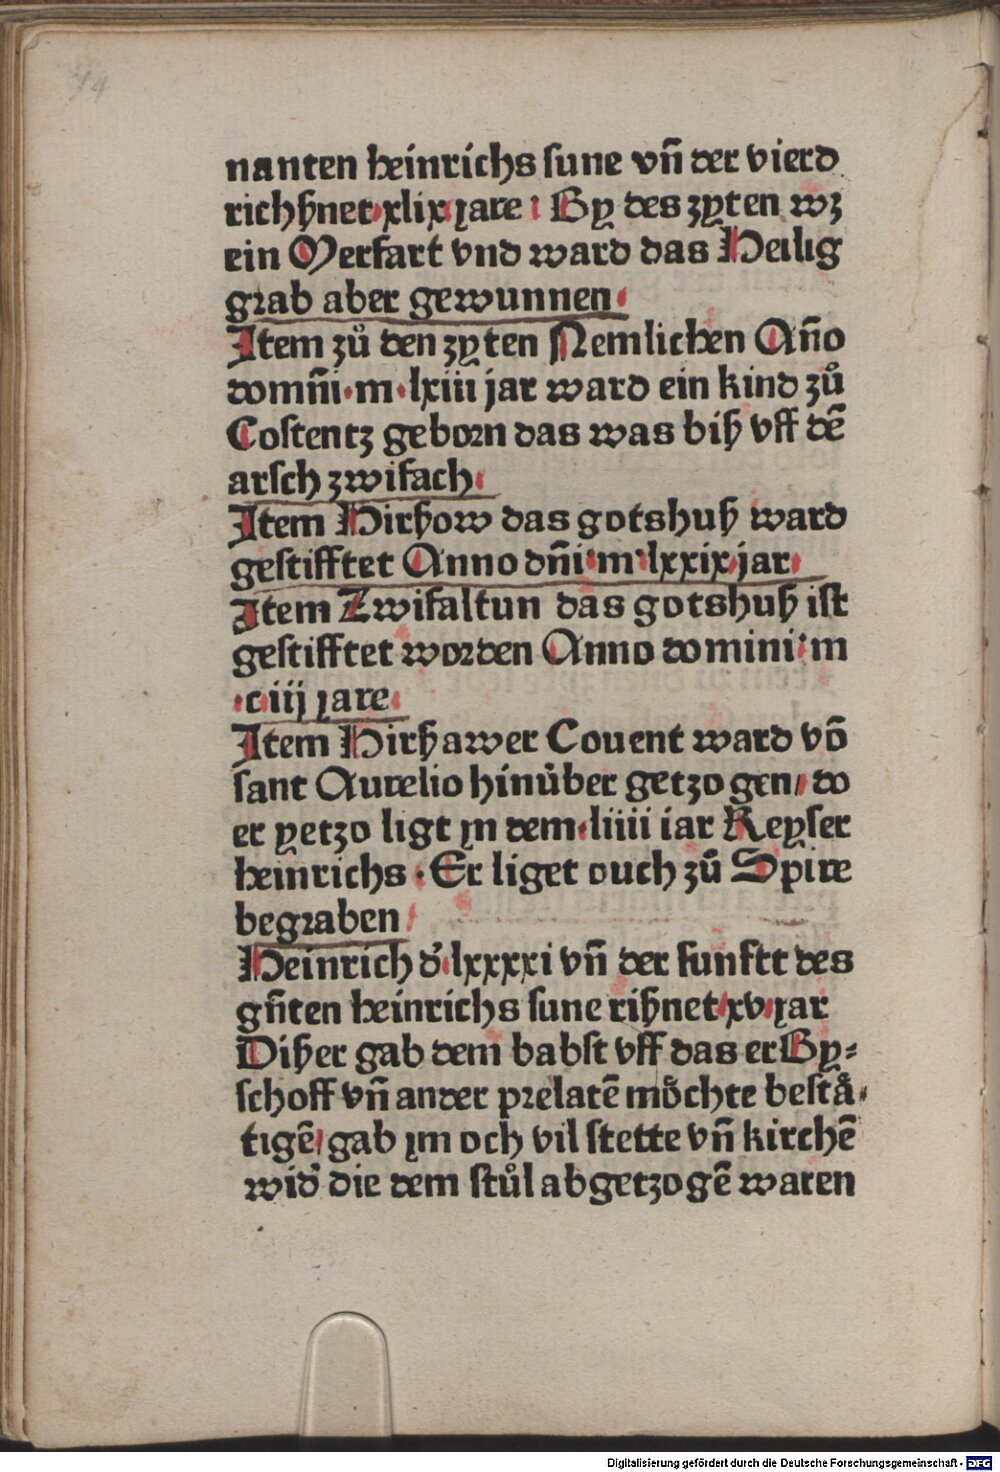 74
nanten heinrichs sune vn̄ der vierd
richßnet·xlix·ȷare : By des zyten wz
ein Merfart vnd ward das Heilig
grab aber gewunnen·
Item zů den zyten Nemlichen An̄o
domn̄i·m·lxiii jar ward ein kind zů
Costentz geborn das was biß vff dē
arsch zwifach·
Item Hirßow das gotshuß ward
gestifftet Anno dn̄i·m·lxxix·jar·
Item Zwifaltun das gotshuß ist
gestifftet worden Anno domini·m
·c·iij ȷare·
Item Hirßawer Couent ward vō
sant Aurelio hinu̍ber getzogen/ do
er yetzo ligt ȷn dem·liiii iar Keyser
heinrichs·Er liget ouch zů Spire
begraben/
Heinrich d᾽·lxxxxi vn̄ der funftt des
gn̄ten heinrichs sune rißnet·xv·ȷar
Dißer gab dem babst vff das er By⸗
schoff vn̄ ander prelatē mo̊chte bestå⸗
tigē/ gab ȷm och vil stette vn̄ kirchē
wid᾽ die dem stůl abgetzogē waren
Digitalisierung gefördert durch die Deutsche Forschungsgemeinschaft - DFG